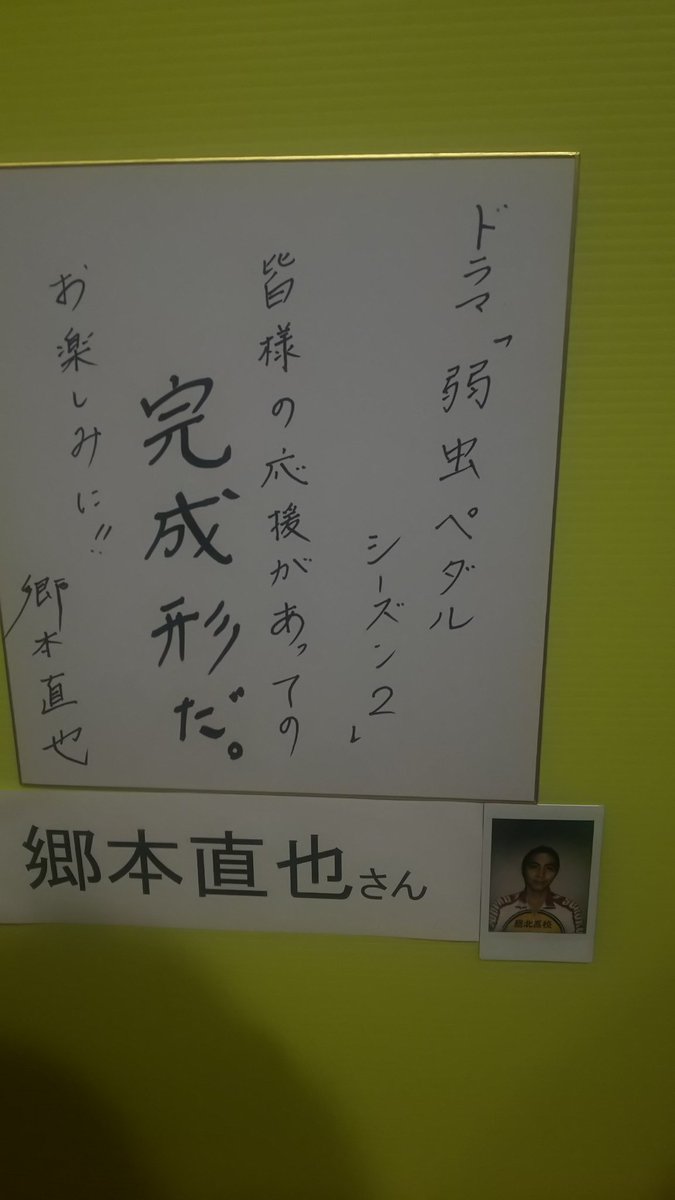 ドラマ「弱虫ペダル
シーズン2」
皆様の応援があっての
完成形だ。
お楽しみに!!
郷本直也
郷本直也さん
総北高校